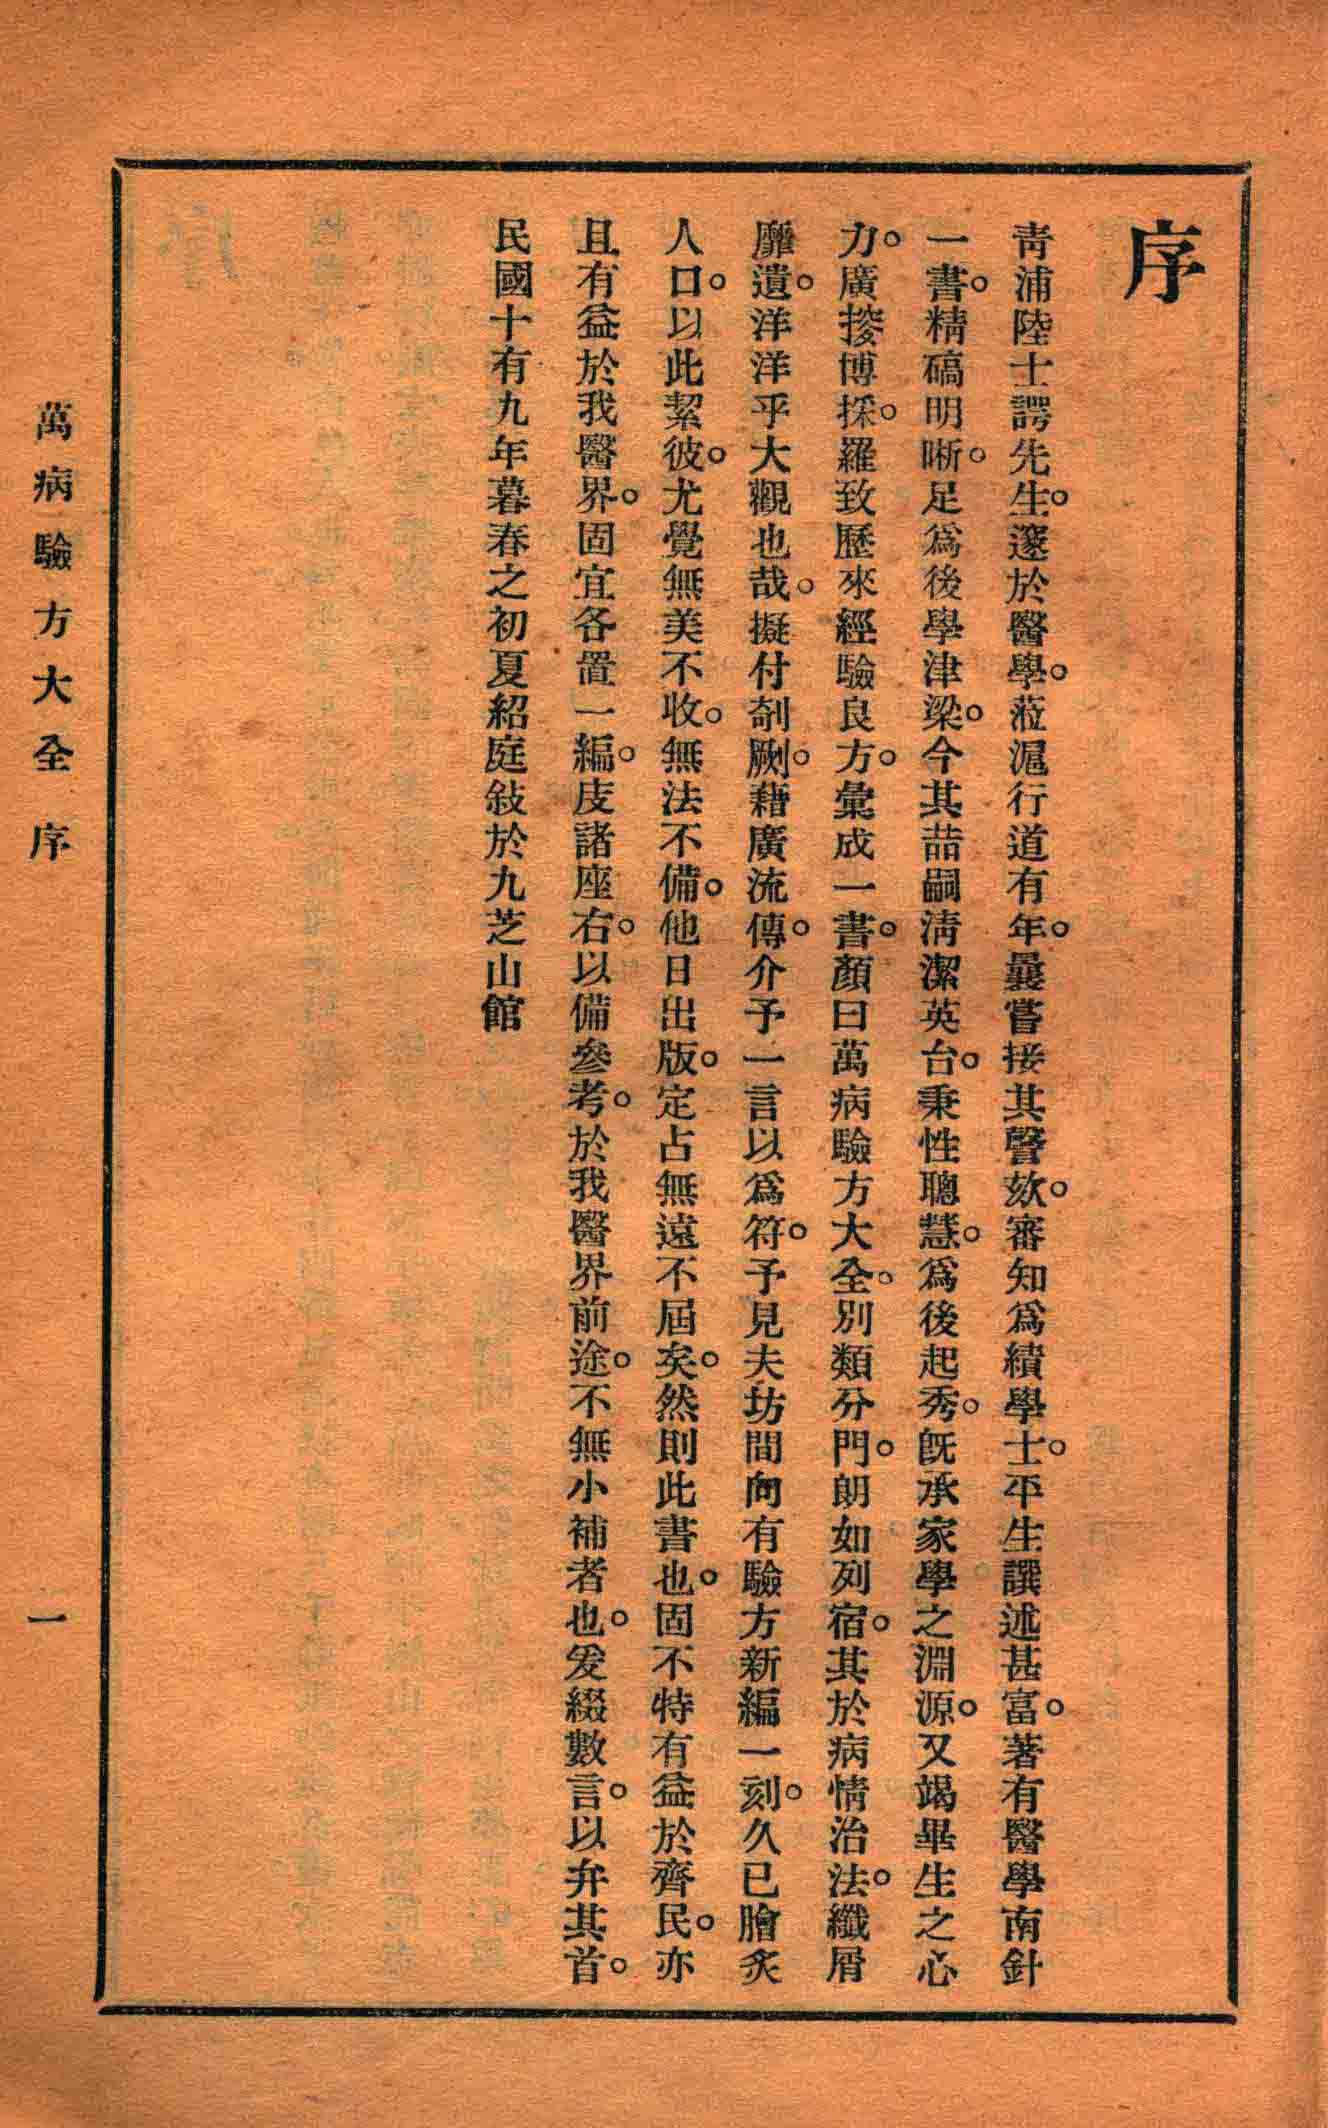 序
青浦陸士諤先生。邃於醫學。蒞滬行道有年。曩嘗接其謦欬。審知爲績學士。平生譔述甚富。著有醫學南針
一書。精碻明晰。足爲後學津梁。今其喆嗣淸潔英台。秉性聰慧。爲後起秀。旣承家學之淵源。又竭畢生之心
力。廣搜博採。羅致歷來經驗良方。彙成一書。顏曰萬病驗方大全。別類分門。朗如列宿。其於病情治法。纖屑
靡遺。洋洋乎大觀也哉。擬付剞劂。藉廣流傳。介予一言以爲符。予見夫坊間向有驗方新編一刻。久已膾炙
人口。以此絜彼。尤覺無美不收。無法不備。他日出版。定占無遠不屆矣。然則此書也。固不特有益於齊民。亦
且有益於我醫界。固宜各置一編。庋諸座右。以備參考。於我醫界前途。不無小補者也。爰綴數言。以弁其首。
民國十有九年暮春之初夏紹庭敍於九芝山館
萬病驗方大全 序
一